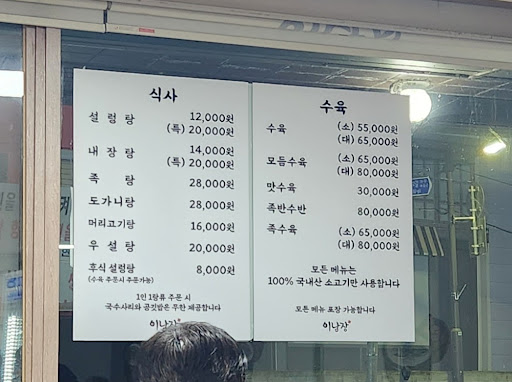 식사
설렁탕 12,000원
(특) 20,000원
내장탕 14,000원
(특) 20,000원
족탕 28,000원
도가니탕 28,000원
머리고기탕 16,000원
우설탕 20,000원
후식 설렁탕 8,000원
(수육 주문시 주문가능)
1인 1탕류 주문 시
국수사리와 공깃밥은 무한 제공합니다
이남장
수육
수육 (소) 55,000원
(대) 65,000원
모듬수육 (소) 65,000원
(대) 80,000원
맛수육 30,000원
족반수반 80,000원
족수육 (소) 65,000원
(대) 80,000원
모든 메뉴는
100% 국내산 소고기만 사용합니다
모든 메뉴 포장 가능합니다
이남장